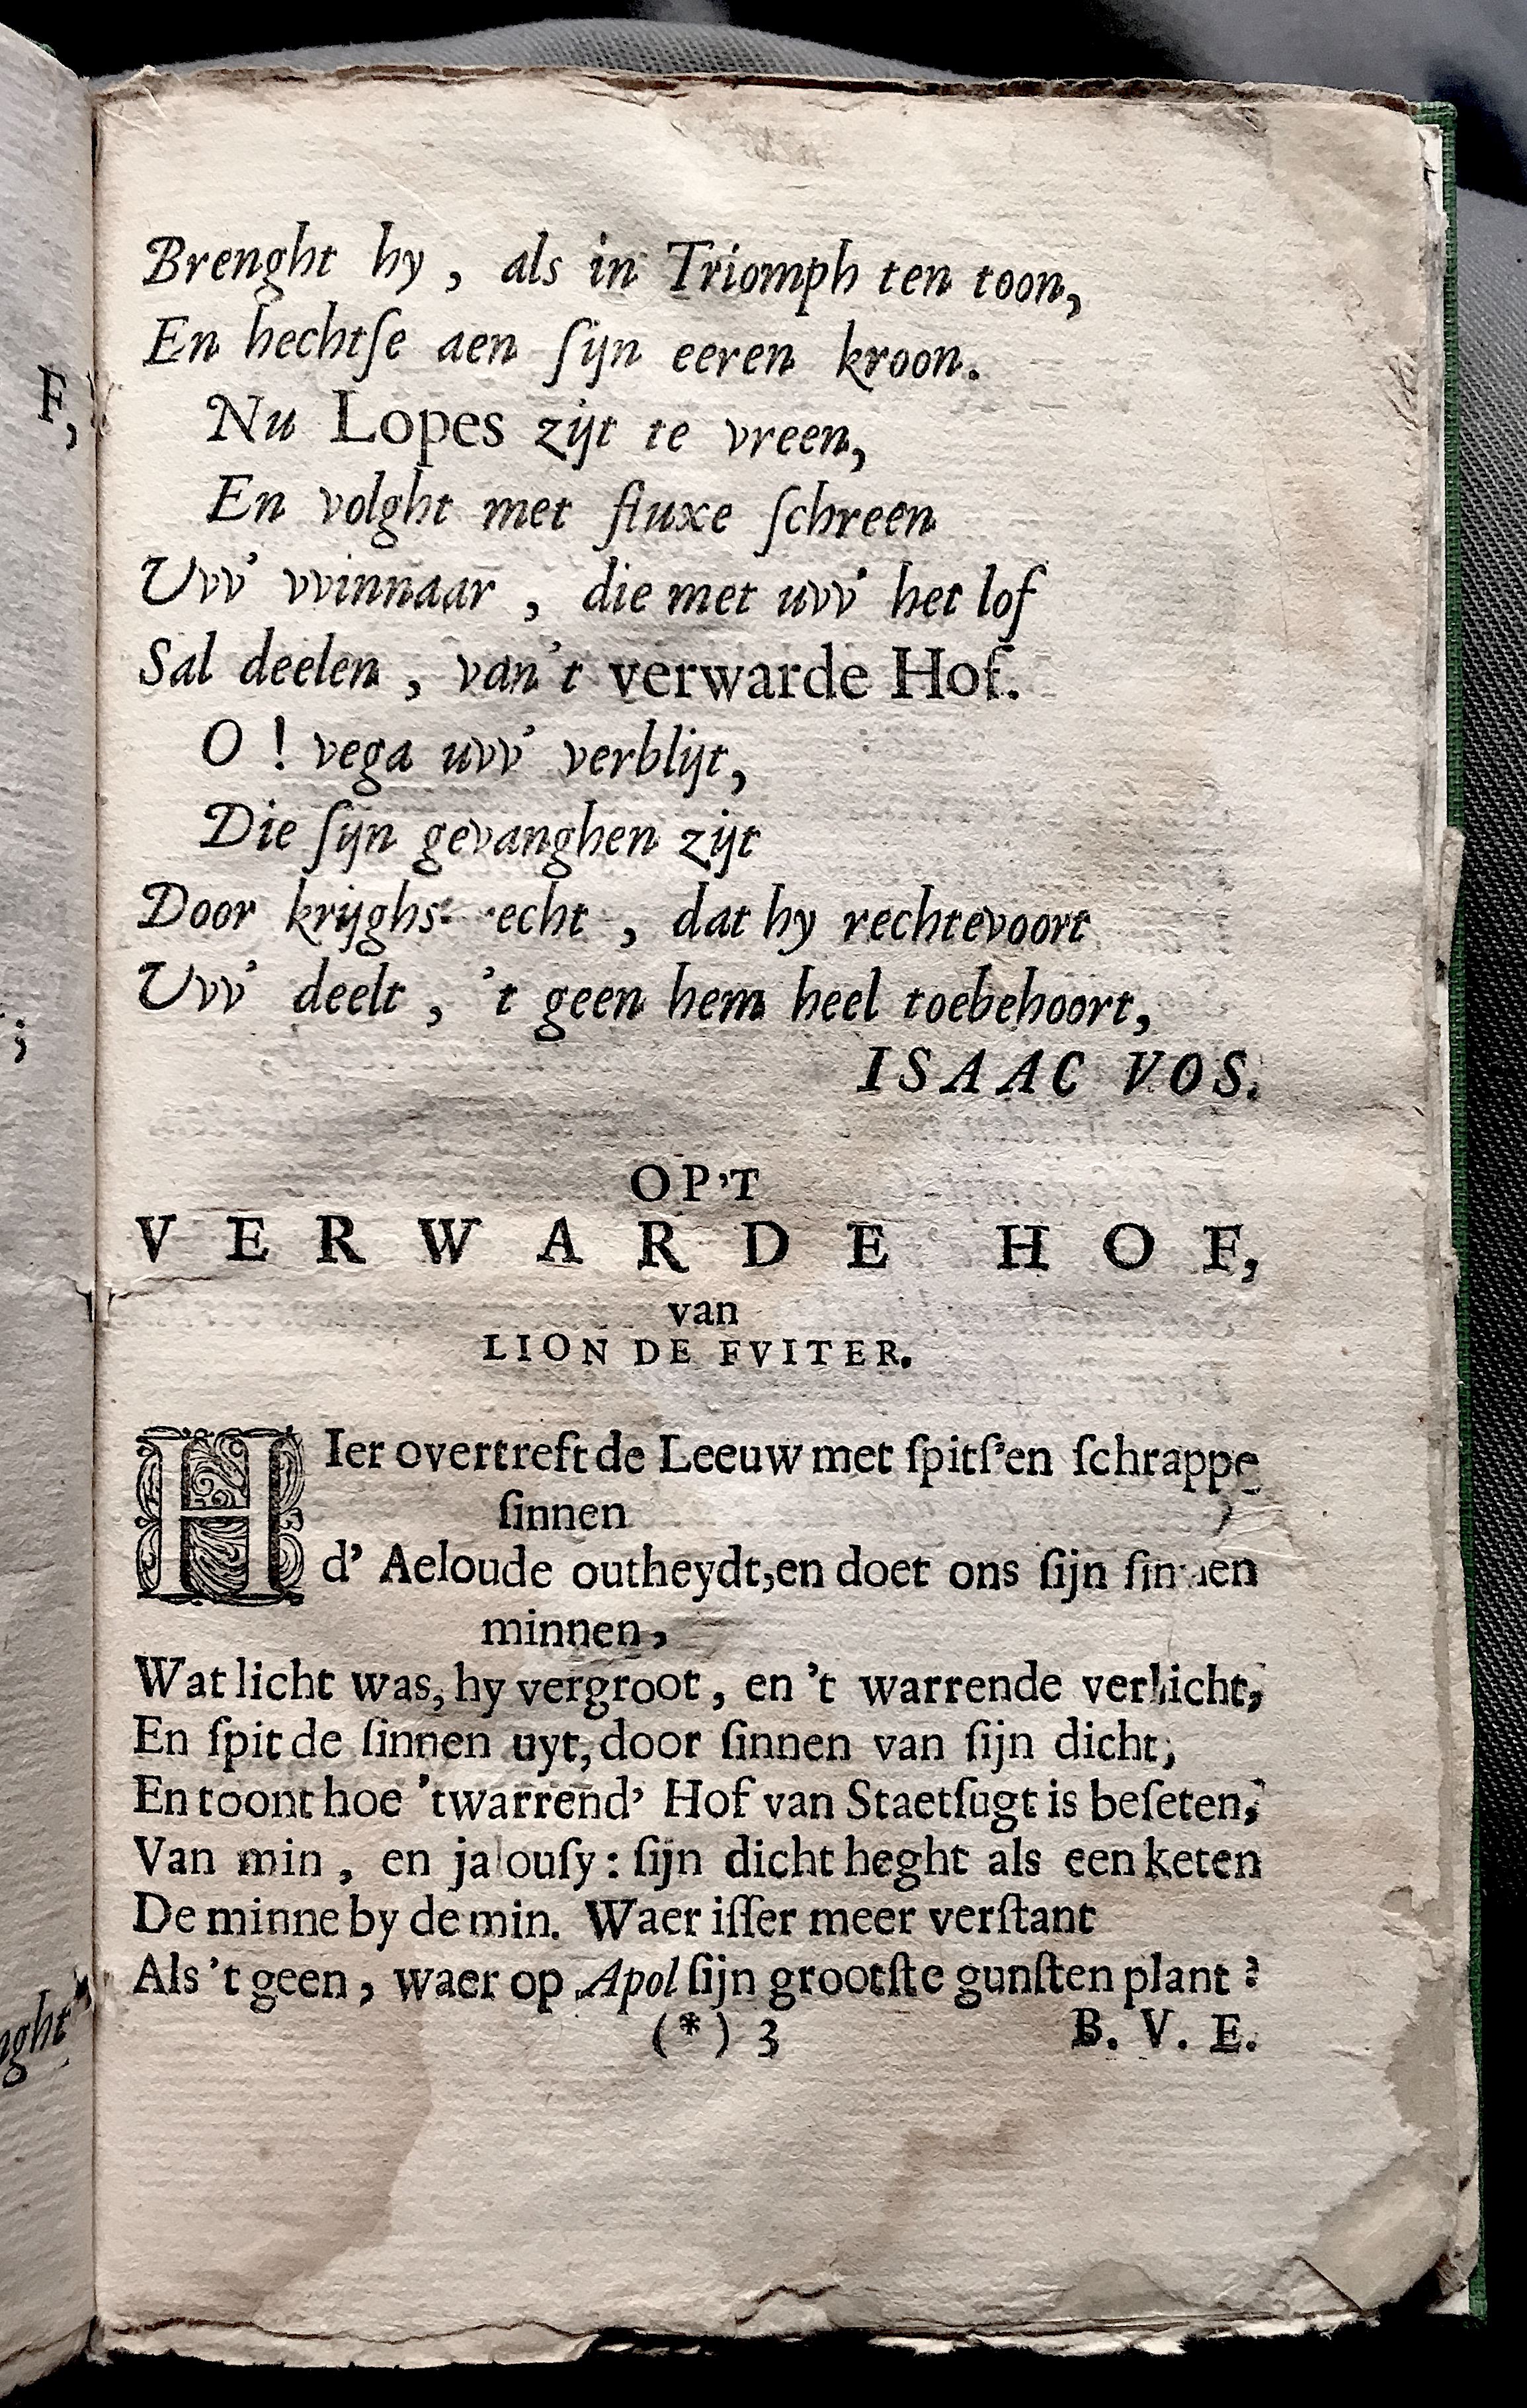 Brenght hy, als in Triomph ten toon,
En hechtſe aen ſijn eeren kroon.
Nu Lopes zijt te vreen,
En volght met fluxe ſchreen
Uvv' vvinnaar, die met uvv' het lof
Sal deelen, van't verwarde Hof.
O! vega uvv' verblijt,
Die ſijn gevanghen zijt
Door krijghs- echt, dat hy rechtevoort
Uvv' deelt, 't geen hem heel toebehoort,
ISAAC VOS.
OP'T
VERWARDE HOF,
van
LION DE FVITER.
HIer overtreft de Leeuw met ſpitſ'en ſchrappe
ſinnen
d' Aeloude outheydt, en doet ons ſijn ſinnen
minnen,
Wat licht was, hy vergroot, en 't warrende verlicht,
En ſpit de ſinnen uyt, door ſinnen van ſijn dicht,
En toont hoe 'twarrend' Hof van Staetſugt is beſeten,
Van min, en jalouſy: ſijn dicht heght als een keten
De minne by de min. Waer iſſer meer verſtant
Als 't geen, waer op Apol ſijn grootſte gunſten plant?
(*) 3 B. V. E.
F,
;
nght